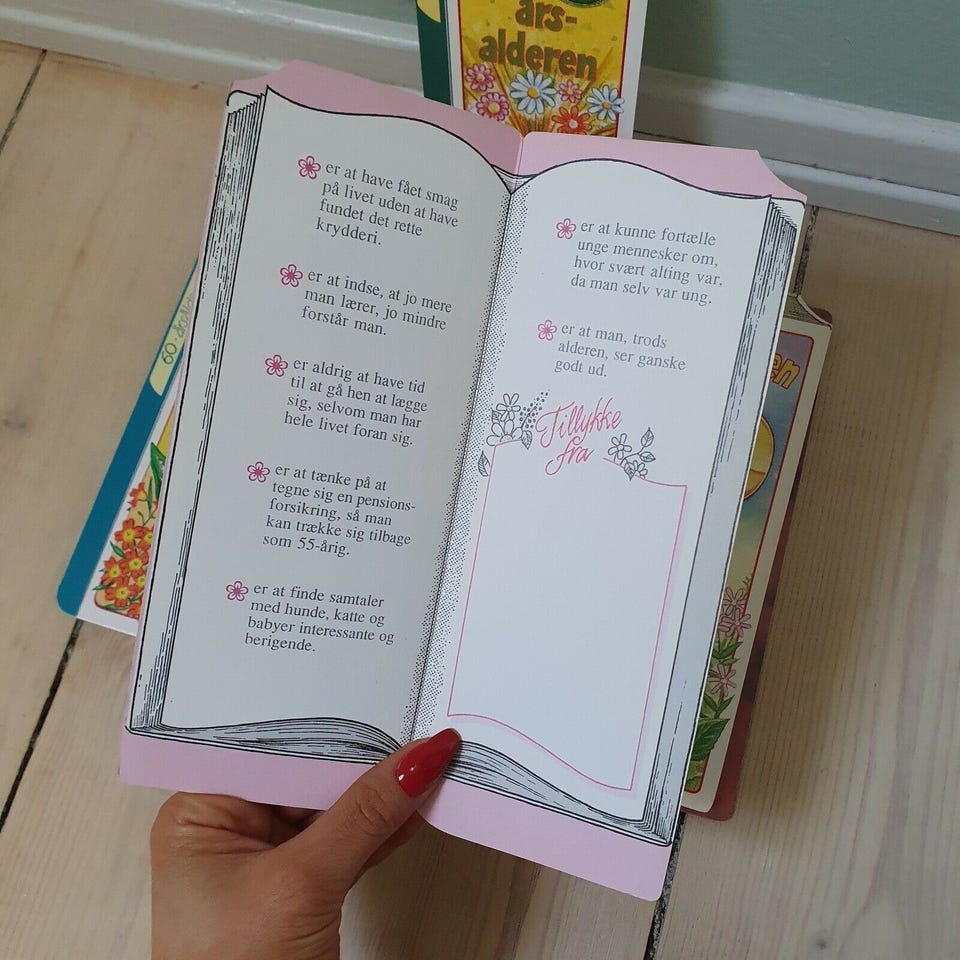 års-
alderen
er at have fået smag
på livet uden at have
fundet det rette
krydderi.
er at indse, at jo mere
man lærer, jo mindre
forstår man.
er aldrig at have tid
til at gå hen at lægge
sig, selvom man har
hele livet foran sig.
er at tænke på at
tegne sig en pensions-
forsikring, så man
kan trække sig tilbage
som 55-årig.
er at finde samtaler
med hunde, katte og
babyer interessante og
berigende.
er at kunne fortælle
unge mennesker om,
hvor svært alting var,
da man selv var ung.
er at man, trods
alderen, ser ganske
godt ud.
Tillykke
fra
60